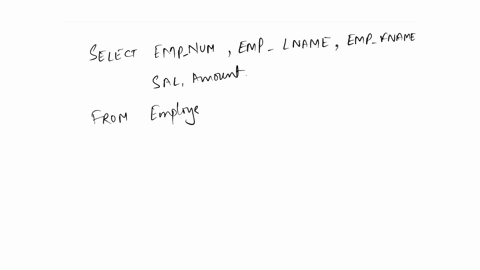 SELECT EMP_NUM , EMP_ LNAME , EMP_FNAME
SAL. Amount.
FROM Employe